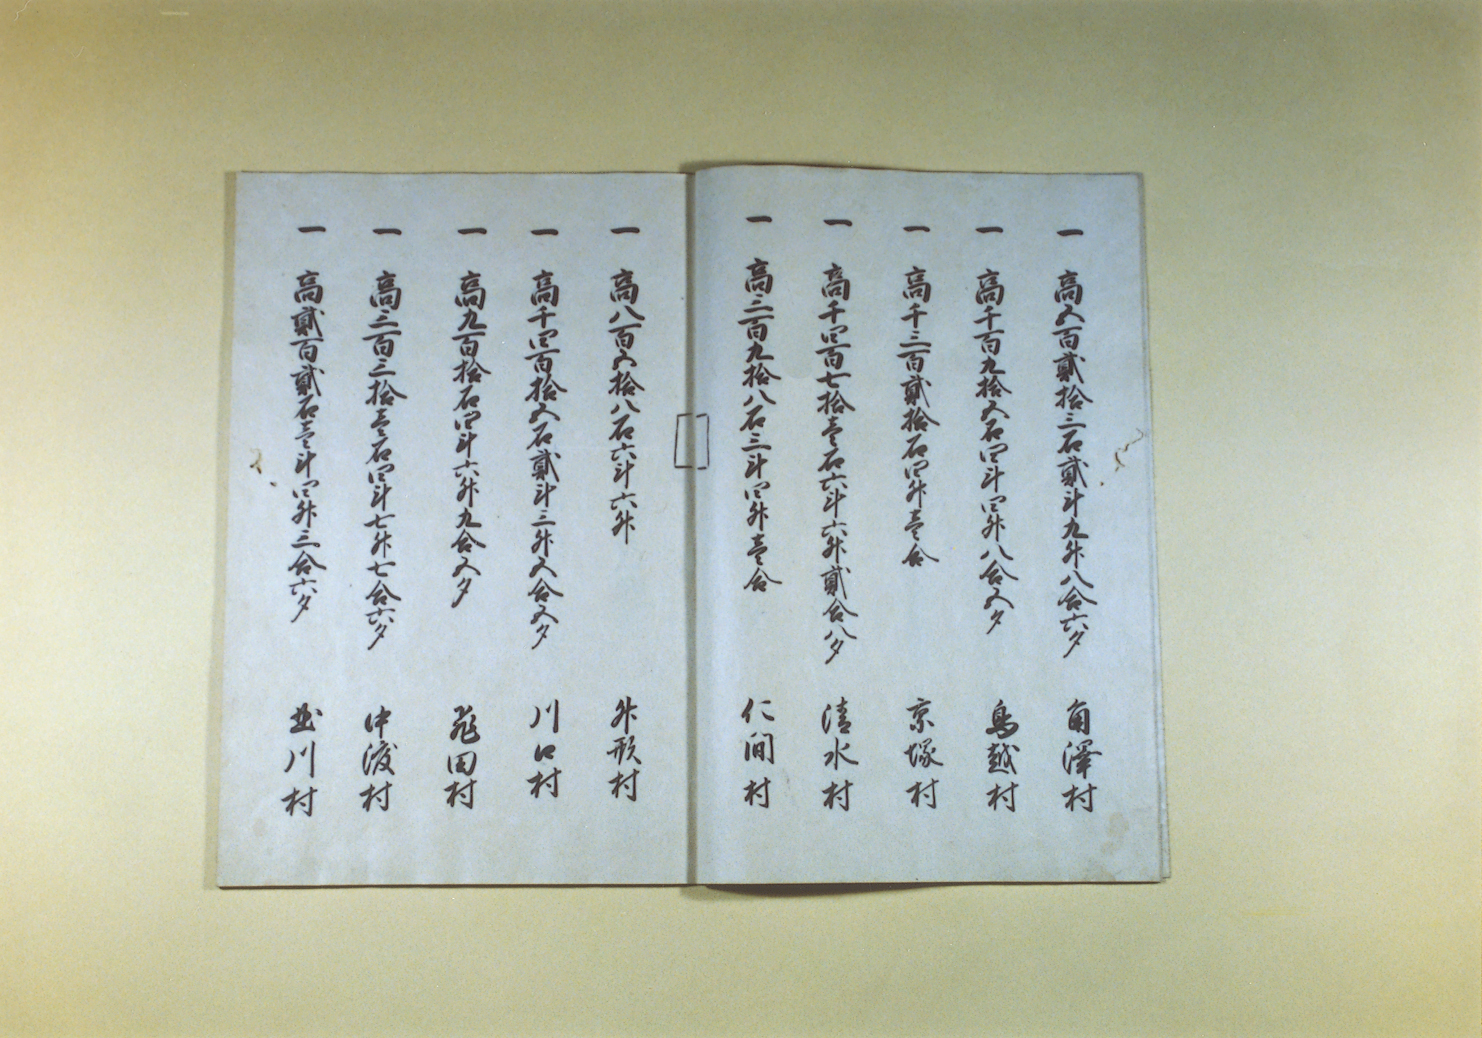 一 高五百貳拾三石貳斗九升八合六夕 角澤村
一 高千百九拾五石四斗四升八合五夕 鳥越村
一 高千三百貳拾石四升壹合 京塚村
一 高千四百七拾壹石六斗六升貳合八夕 清水村
一 高三百九拾八石三斗四升壹合 仁間村
一 高八百五拾八石六斗六升 外形村
一 高千四百拾五石貳斗三升五合五夕 川口村
一 高九百拾石四斗六升九合五夕 飛田村
一 高三百三拾壹石四斗七升七合六夕 中渡村
一 高貳百貳石壹斗四升三合六夕 並川村